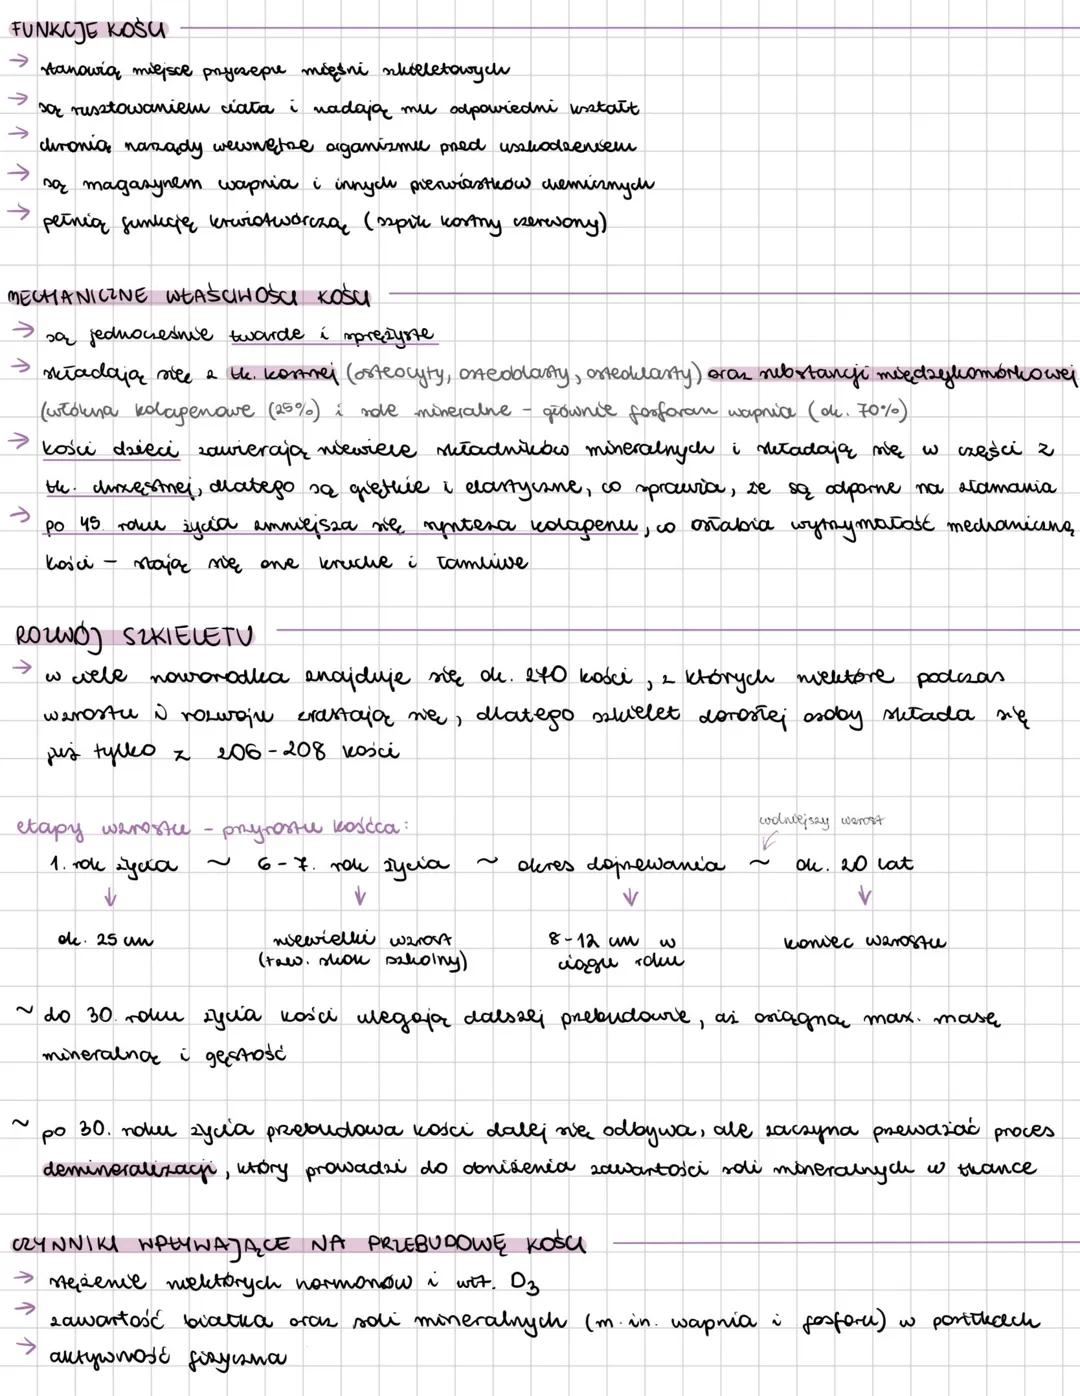 FUNKCJE KOŚCI
→ stanowią miejsce przyczepu mięśni szkieletowych
→ są rusztowaniem ciała i nadają mu odpowiedni kształt
→ chronią narządy wewnętrzne organizmu przed uszkodzeniem
→ są magazynem wapnia i innych pierwiastków chemicznych
→ pełnią funkcję krwiotwórczą (szpik kostny czerwony)
MECHANICZNE WŁAŚCIWOŚCI KOŚCI
→ są jednocześnie twarde i sprężyste
→ składają się z tk. kostnej (osteocyty, osteoblasty, osteoklasty) oraz substancji międzykomórkowej
(włókna kolagenowe (25%) i sole mineralne - głównie fosforan wapnia (ok. 70%)
→ kości dzieci zawierają niewiele składników mineralnych i składają się w części z
tk. chrzęstnej, dlatego są giętkie i elastyczne, co sprawia, że są odporne na złamania
→ po 45. roku życia zmniejsza się synteza kolagenu, co osłabia wytrzymałość mechaniczną
kości - stają się one kruche i łamliwe
ROZWÓJ SZKIELETU
→ w ciele noworodka znajduje się ok. 270 kości, z których niektóre podczas
wzrostu i rozwoju zrastają się, dlatego szkielet dorosłej osoby składa się
już tylko z 206-208 kości
etapy wzrostu - przyrostu kośćca:
wolniejszy wzrost
1. rok życia ~ 6-7. rok życia ~ okres dojrzewania ~ ok. 20 lat
↓ ↓ ↓ ↓
ok. 25 cm niewielki wzrost 8-12 cm w koniec wzrostu
(tzw. skok szkolny) ciągu roku
~ do 30. roku życia kości ulegają dalszej przebudowie, aż osiągną max. masę
mineralną i gęstość
~ po 30. roku życia przebudowa kości dalej się odbywa, ale zaczyna przeważać proces
demineralizacji, który prowadzi do obniżenia zawartości soli mineralnych w tkance
CZYNNIKI WPŁYWAJĄCE NA PRZEBUDOWĘ KOŚCI
→ stężenie niektórych hormonów i wit. D3
→ zawartość białka oraz soli mineralnych (m.in. wapnia i fosforu) w posiłkach
→ aktywność fizyczna